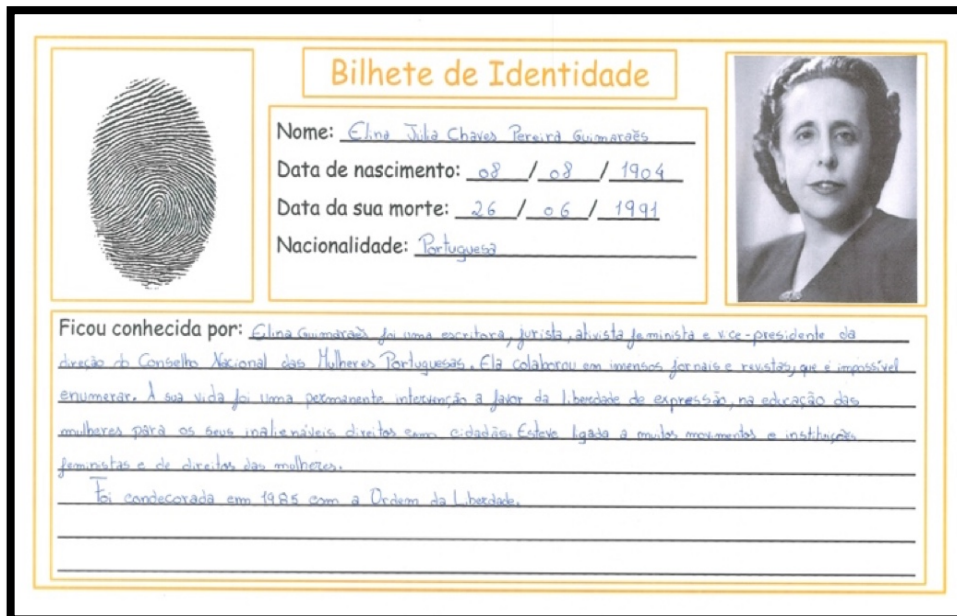 Bilhete de Identidade
Nome: Elina Júlia Chaves Pereira Guimarães
Data de nascimento: 08 / 08 / 1904
Data da sua morte: 26 / 06 / 1991
Nacionalidade: Portuguesa
Ficou conhecida por: Elina Guimarães foi uma escritora, jurista, ativista feminista e vice-presidente da
direção do Conselho Nacional das Mulheres Portuguesas. Ela colaborou em imensos jornais e revistas, que é impossível
enumerar. A sua vida foi uma permanente intervenção a favor da liberdade de expressão, na educação das
mulheres para os seus inalienáveis direitos como cidadãs. Esteve ligada a muitos movimentos e instituições
feministas e de direitos das mulheres.
Foi condecorada em 1985 com a Ordem da Liberdade.